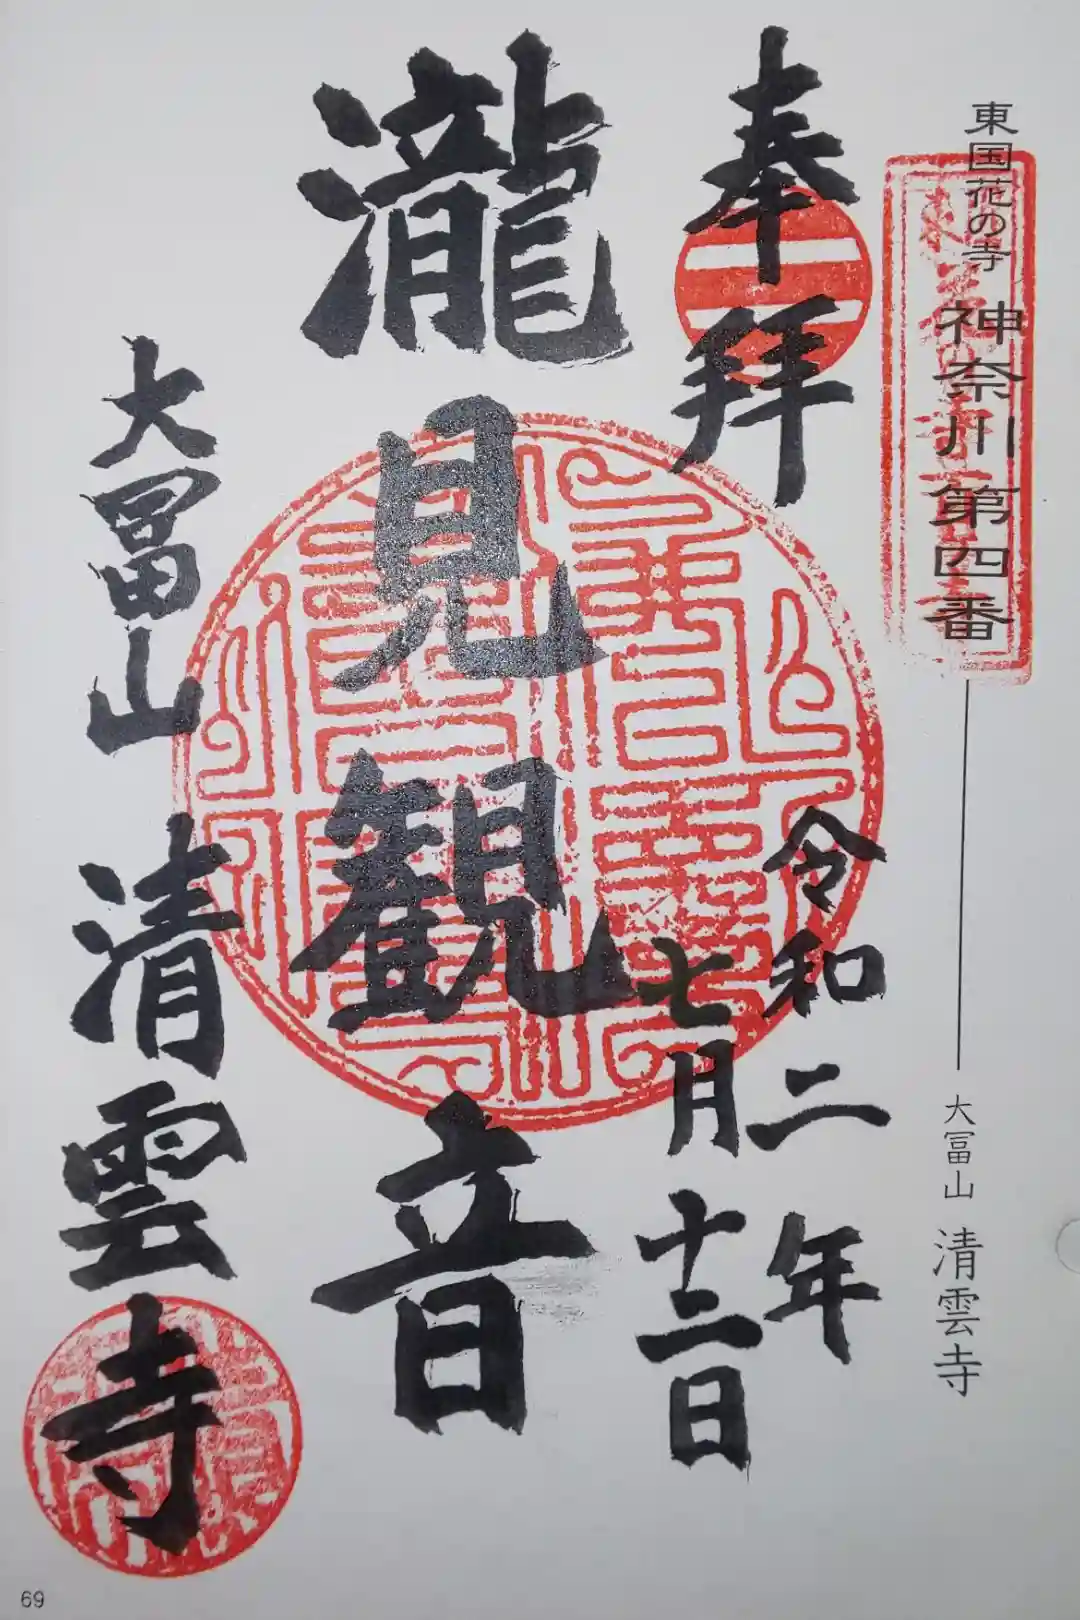 東国花の寺 神奈川第四番
大冨山 清雲寺
奉拝
令和二年
七月十二日
瀧見観音
大冨山 清雲寺
69